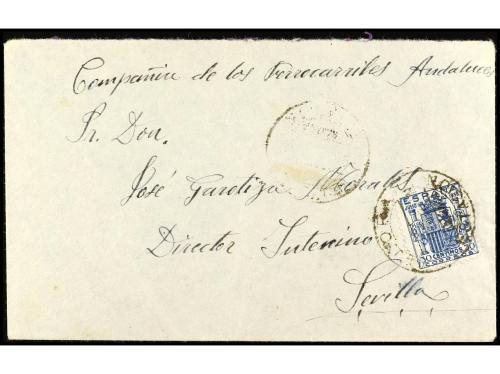 Compañia de los Ferrocarriles Andaluces
Sr. Don.
José Morales
Director Interino
Sevilla
ESPAÑA
30 CENTIMOS